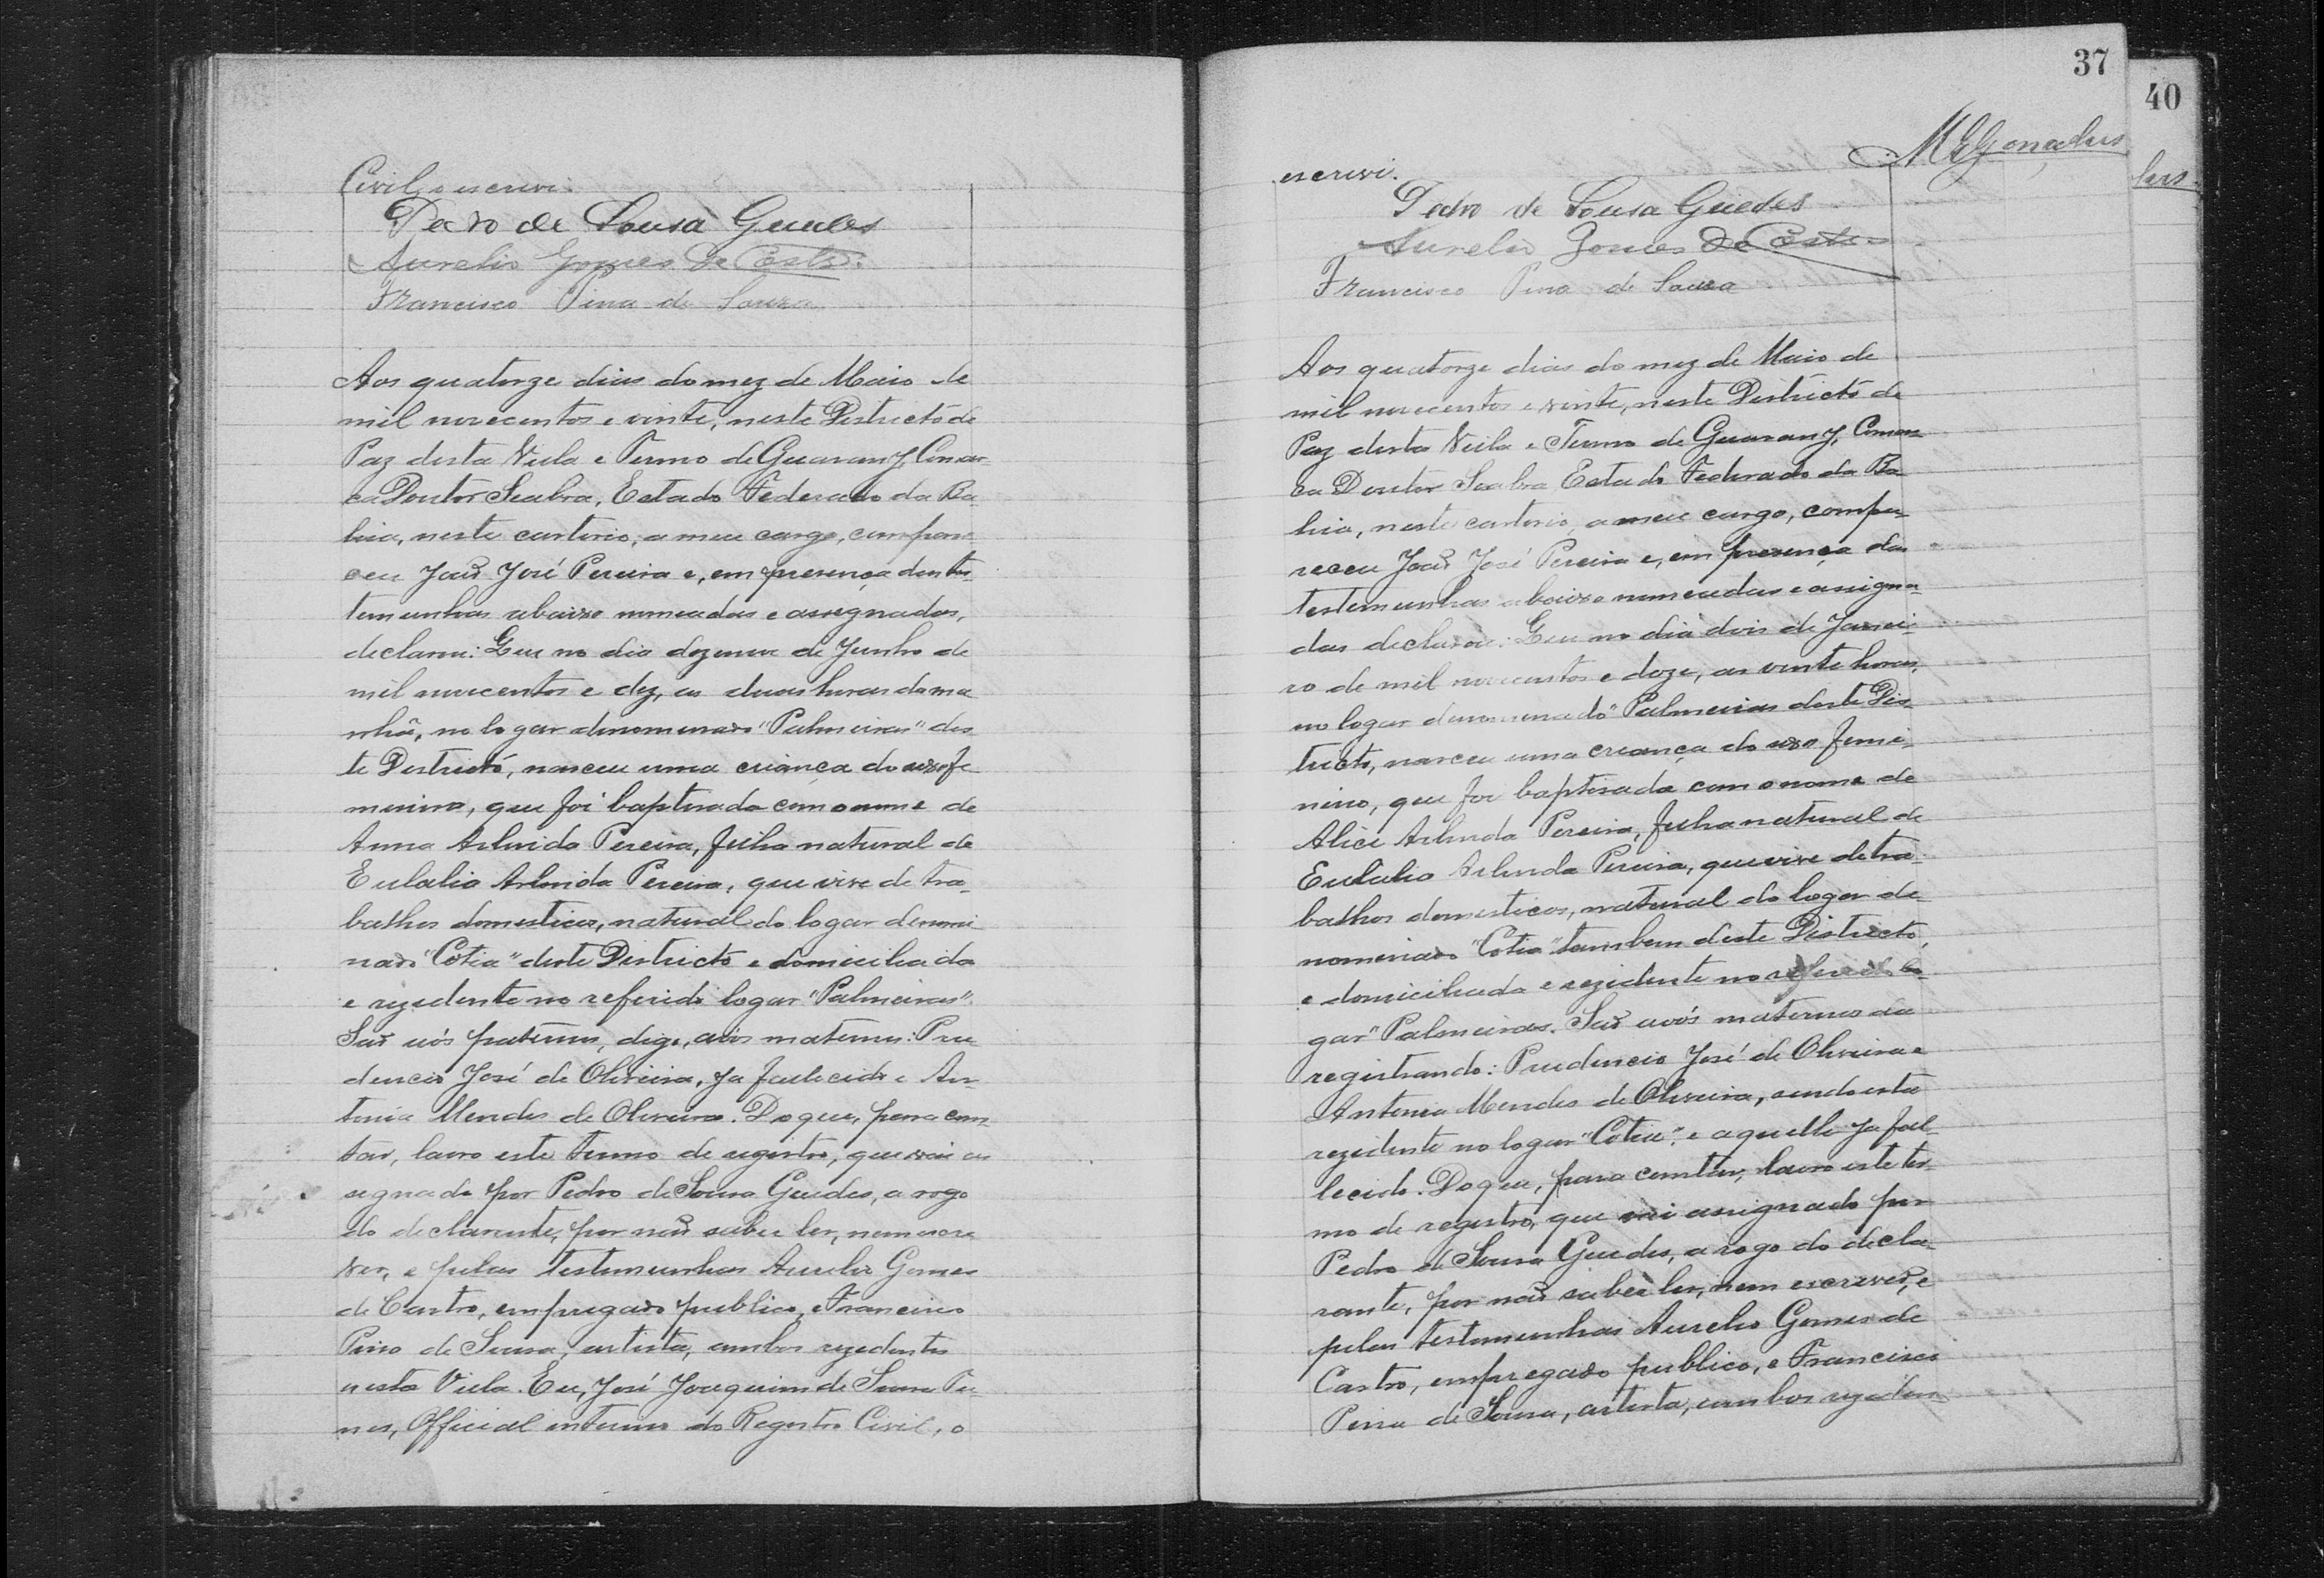 Civil, o escrevi.
Pedro de Sousa Guedes
Aurelio Gomes de Castro
Francisco Pina de Souza
Aos quatorze dias do mez de Maio de
mil novecentos e vinte, neste Districto de
Paz desta Villa e Termo de Guarany, Comar-
ca Doutor Seabra, Estado Federado da Ba-
hia, neste cartorio, a meu cargo, compare-
ceu João José Pereira e, em presença das tes-
temunhas abaixo nomeadas e assignadas,
declarou: Que no dia dezenove de Junho de
mil novecentos e dez, as duas horas da ma-
nhã, no logar denominado "Palmeiras" des-
te Districto, nasceu uma criança do sexo fe-
menino, que foi baptisada com o nome de
Anna Arlinda Pereira, filha natural de
Eulalia Arlinda Pereira, que vive de tra-
balhos domesticos, natural do logar denomi-
nado "Cotia" deste Districto e domiciliada
e rezidente no referido logar "Palmeiras".
São avós paternos, digo, avós maternos: Pru-
dencio José de Oliveira, ja fallecido e An-
tonia Mendes de Oliveira. Do que, para cons-
tar, lavro este termo de registro, que vai as-
segnado por Pedro de Sousa Guedes, a rogo
do declarante, por não saber ler, nem escre-
ver, e pelas testemunhas Aurelio Gomes
de Castro, empregado publico, e Francisco
Pina de Sousa, artista, ambos rezidentes
nesta Villa. Eu, José Joaquim de Sousa Pi-
nes, Official interino do Registro Civil, o
37
40
MGGonçalves
lves
escrevi.
Pedro de Sousa Guedes
Aurelio Gomes de Castro
Francisco Pina de Souza
Aos quatorze dias do mez de Maio de
mil novecentos e vinte, neste Districto de
Paz desta Villa e Termo de Guarany, Comar-
ca Doutor Seabra Estado Federado da Ba-
hia, neste cartorio, a meu cargo, compa-
receu João José Pereira e, em presença das
testemunhas abaixo nomeadas e assigna-
das declarou: Que no dia dois de Janei-
ro de mil novecentos e doze, as vinte horas,
no logar denominado "Palmeiras deste Dis-
tricto, nasceu uma criança do sexo femi-
nino, que foi baptisada com o nome de
Alice Arlinda Pereira, filha natural de
Eulalia Arlinda Pereira, que vive de tra-
balhos domesticos, natural do logar de-
nominado "Cotia" tambem deste Districto,
e domiciliada e rezidente no referido lo-
gar "Palmeiras. São avós maternos da
registrando: Prudencio José de Oliveira e
Antonia Mendes de Oliveira, sendo esta
rezidente no logar "Cotia", e aquelle ja fal-
lecido. Do que, para constar, lavro este ter-
mo de registro, que vai assignado por
Pedro de Sousa Guedes, a rogo do decla-
rante, por não saber ler, nem escrever, e
pelas testemunhas Aurelio Gomes de
Castro, empregado publico, e Francisco
Pina de Sousa, artista, ambos reziden-